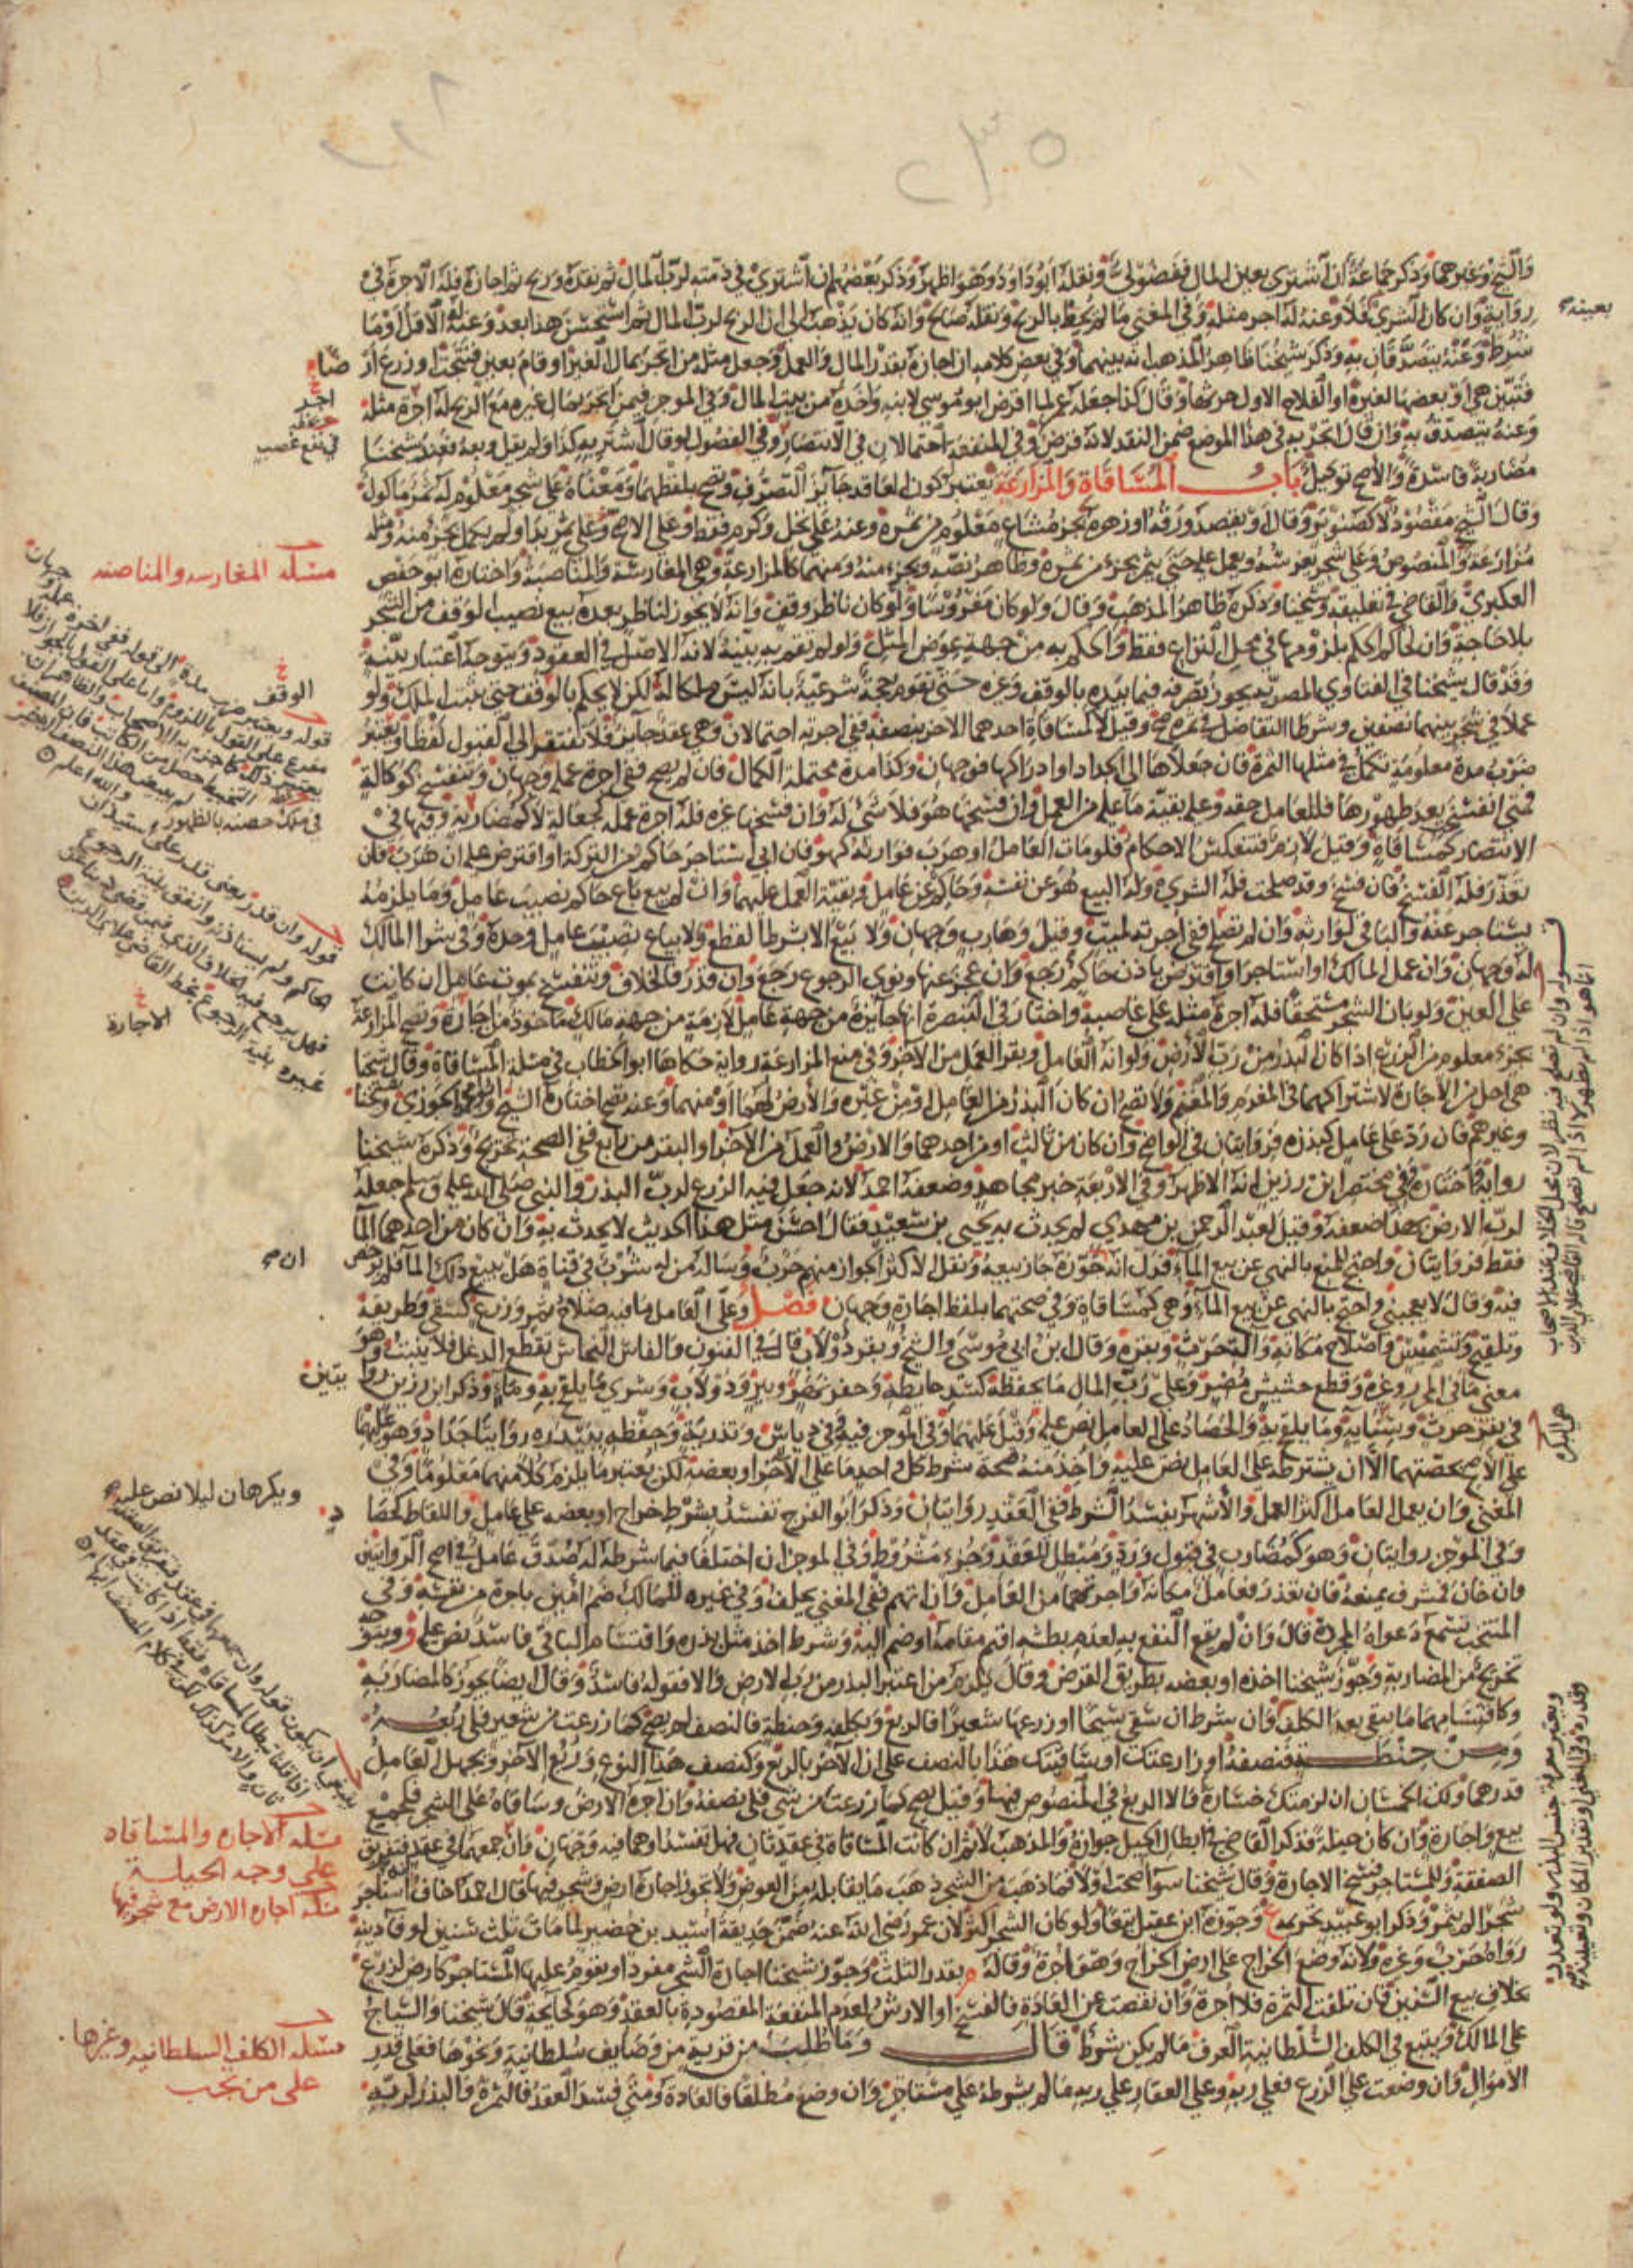 والشيخ وغيرهما وذكر جماعة إن اشترى بعين المال ففضولي ونقله أبو داود وهو أظهر وذكر بعضهم إن اشترى في ذمته لرب المال ثم نقده وربح ثم أجازه فله الأجرة في
رواية وإن كان الشرى فلا وعنه له أجر مثله وفي المغني ما لم يحط بالربح ونقله صالح وأنه كان يذهب إلى أن الربح لرب المال ثم استحسن هذا بعد وعنه له الأقل أو ما
شرط وعنه يتصدقان به وذكر شيخنا ظاهر المذهب أنه بينهما وفي بعض كلامه إن أجازه بقدر المال والعمل وجعل مثله من اتجر بمال الغير أو قام بعين فنتجت أو زرع أرضا
فتبين هي أو بعضها لغيره أو الفلاح الأول حرثها وقال كذا جعله عمر لما أقرض أبو موسى لابنيه وأخذه من بيت المال وفي الموجز فيمن اتجر بمال غيره مع الربح له أجرة مثله
وعنه يتصدق به وإن قال اتجر به في هذا الموضع ضمن النقد لأنه قرض وفي المنفعة احتمالان في الانتصار وفي الفصول لو قال اشتر به كذا ولم يقل وبعه فعند شيخنا
مضاربة فاسدة والأصح توكيل باب المساقاة والمزارعة يعتبر كون العاقد جائز التصرف وتصح بلفظهما ومعناه على شجر معلوم له ثمر مأكول
وقال الشيخ مقصود لا كصنوبر وقال أو يقصد ورقه أو زهره بجزء مشاع معلوم من ثمره وعنه على نخل وكرم فقط وعلى الأصح وعلى ثمر بدا ولم يكمل بجزء منه ومثله
مزارعة والمنصوص وعلى شجر يغرسه ويعمل عليه حتى يثمر بجزء من ثمره وظاهر نصه وبجزء منه ومنهما كالمزارعة وهي المغارسة والمناصبة واختاره أبو حفص
العكبري والقاضي في تعليقه وشيخنا وذكره ظاهر المذهب وقال ولو كان مغروسا ولو كان ناظر وقف وأنه لا يجوز لناظر بعده بيع نصيب الوقف من الشجر
بلا حاجة وأن لحاكم الحكم بلزومها في محل النزاع فقط والحكم به من جهة عوض المثل ولو لم تقم به بينة لأنه الأصل في العقود ويتوجه اعتبار بينة
وقد قال شيخنا في الفتاوي المصرية يجوز تصرفه فيما بيده بالوقف وغيره حتى تقوم حجة شرعية بأنه ليس ملكا له لكن لا يحكم بالوقف حتى يثبت الملك ولو
عملا في شجر بينهما نصفين وشرطا التفاضل في ثمره صح وقيل لا كمساقاة أحدهما الآخر بنصفه ففي أجرته احتمالان وهي عقد جائز فلا تفتقر إلى القبول لفظا ويعتبر
ضرب مدة معلومة تكمل في مثلها الثمرة فإن جعلاها إلى الجداد أو إدراكها فوجهان وكذا مدة محتملة الكمال فإن لم يصح ففي أجرة عمله وجهان وتنفسخ كوكالة
فمتى انفسخ بعد ظهورها فللعامل حقه وعليه بقية ما عليه من العمل وإن فسخها هو فلا شيء له وإن فسخها غيره فله أجرة عمله كجعالة لا كمضاربة وفيها في
الانتصار كمساقاة وقيل لازم فتنعكس الأحكام فلو مات العامل أو هرب فوارثه كهو فإن أبى استأجر حاكم من التركة أو اقترض عليه إن هرب فإن
تعذر فله الفسخ فإن فسخ وقد صلحت فله الشرى وله البيع هو عن نفسه وحاكم عن عامل وبقية العمل عليهما وإن لم يبع باع حاكم نصيب عامل وما يلزمه
يستأجر عنه والباقي لوارثه وإن لم تصلح ففي أجرته لميت وقيل وهارب وجهان ولا يبع إلا بشرط القطع ولا يباع نصيب عامل وحده وفي شرا المالك
له وجهان وإن عمل المالك أو استأجر أو اقترض بإذن حاكم رجع وإن عجز عنها ونوى الرجوع رجع وإن قدر فالخلاف وتنفسخ بموت عامل إن كانت
على العين ولو بان الشجر مستحقا فله أجرة مثله على غاصبه واختار في التبصرة أنها جائزة من جهة عامل لازمة من جهة مالك مأخوذ من إجارة وتصح المزارعة
بجزء معلوم من الزرع إذا كان البذر من رب الأرض ولو أنه العامل وبقر العمل من الآخر وفي منع المزارعة رواية حكاها أبو الخطاب في مسئلة المساقاة وقال شيخنا
هي أحل من الإجارة لاشتراكهما في المغرم والمغنم ولا تصح إن كان البذر من العامل أو من غيره والأرض لهما أو منهما وعنه تصح اختاره الشيخ وابن الجوزي وشيخنا
وغيرهم فإن رد على عامل كبذره فروايتان في الواضح وإن كان من ثالث أو من أحدهما والأرض والعمل من الآخر أو البقر من رابع ففي الصحة تخريج وذكره شيخنا
رواية واختاره وفي مختصر ابن رزين أنه الأظهر وفي الأربعة خبر مجاهد وضعفه أحمد لأنه جعل فيه الزرع لرب البذر والنبي صلى الله عليه وسلم جعله
لرب الأرض لهذا ضعفه وقيل لعبد الرحمن بن مهدي لم يحدث به يحيى بن سعيد فقال أحسن مثل هذا الحديث لا يحدث به وإن كان من أحدهما الماء
فقط فروايتان واحتج للمنع بالنهي عن بيع الماء فدل أنه إن جوزه جاز بيعه ونقل الأكثر الجواز منهم حرب وسأله من له شرب في قناة هل يبيع ذلك الماء فلم يرخص
فيه وقال لا يعجبني واحتج بالنهي عن بيع الماء وهي كمساقاة وفي صحتهما بلفظ إجارة وجهان فصل وعلى العامل ما فيه صلاح ثمر وزرع كسقي وطريقه
وتلقيح وتشميس وإصلاح مكانه وآلة حرث وبقره وقال ابن أبي موسى والشيخ وبقر دولاب قال في الفنون والفأس النحاس تقطع الدغل فلا ينبت وهو
معنى ما في المجرد وغيره وقطع حشيش مضر وعلى رب المال ما يحفظه كسد حايطه وحفر نهر وبير ودولاب وشرى ما يلقح به وماء وذكر ابن رزين روايتين
في بقر حرث وسانية وما يلقح به والحصاد على العامل نص عليه وقيل عليهما وفي الموجز فيه وفي دياس وتذرية وحفظه ببيدره روايتا جداد وهو عليهما
على الأصح بحصتهما إلا أن يشترطه على العامل نص عليه وأخذ منه صحة شرط كل واحد ما على الآخر أو بعضه لكن يعتبر ما يلزم كلا منهما معلوما وفي
المغني وأن يعمل العامل أكثر العمل والأشهر يفسد الشرط ففي العقد روايتان وذكر أبو الفرج تفسد بشرط خراج أو بعضه على عامل واللقاط كحصاد
وفي الموجز روايتان وهو كمضارب في قبول ورد ومبطل للعقد وجزء مشروط وفي الموجز إن اختلفا فيما شرط له صدق عامل في أصح الروايتين
وإن خان فمشرف يمنعه فإن تعذر فعامل مكانه وأجرتهما من العامل وإن اتهم ففي المغني يحلف وفي غيره للمالك ضم أمين بأجرة من نفسه وفي
المنتخب تسمع دعواه المجردة قال وإن لم يقع النفع به لعدم بطشه أقيم مقامه أو ضم إليه وشرط أخذ مثل بذره واقتسام الباقي فاسد نص عليه ويتوجه
تخريج من المضاربة وجوز شيخنا أخذه أو بعضه بطريق القرض وقال يلزم من اعتبر البذر من رب الأرض وإلا فقوله فاسد وقال أيضا يجوز كالمضاربة
وكاقتسامهما ما يبقى بعد الكلف وإن شرط إن سقى سيحا أو زرعها شعيرا فالربع وبكلفة وحنطة فالنصف لم يصح كما زرعت من شعير فلي ربعه
ومن حنطة فنصفه أو زارعتك أو ساقيتك هذا بالنصف على أن الآخر بالربع وكنصف هذا النوع وربع الآخر ويجهل العامل
قدرهما ولك الخمسان إن لزمتك خسارة وإلا الربع في المنصوص فيها وقيل يصح كما زرعت من شيء فلي نصفه وإن آجره الأرض وساقاه على الشجر فكجمع
بيع وإجارة وإن كان حيلة فذكر القاضي في إبطال الحيل جوازه والمذهب لا ثم إن كانت المساقاة في عقد ثان فهل تفسد أو هما فيه وجهان وإن جمعهما في عقد فتفريق
الصفقة وللمستأجر فسخ الإجارة وقال شيخنا سواء صحت أو لا فما ذهب من الشجر ذهب ما يقابله من العوض ولا تجوز إجارة أرض وشجر فيها قال أحمد أخاف أنه استأجر
شجرا لم يثمر وذكر أبو عبيد تحريمه ع وجوزه ابن عقيل تبعا ولو كان الشجر أكثر لأن عمر رضي الله عنه ضمن حديقة أسيد بن حضير لما مات ثلث سنين لوفا دينه
رواه حرب وغيره ولأنه وضع الخراج على أرض الخراج وهو أجرة وقاله م بقدر الثلث وجوز شيخنا إجارة الشجر مفردا ويقوم عليها المستأجر كأرض لزرع
بخلاف بيع السنين فإن تلفت الثمرة فلا أجرة وإن نقصت عن العادة فالفسخ أو الأرش لعدم المنفعة المقصودة بالعقد وهو كجائحة قال شيخنا والسياج
على المالك ويتبع في الكلف السلطانية العرف ما لم يكن شرط قال وما طلب من قرية من وضايف سلطانية ونحوها فعلى قدر
الأموال وإن وضعت على الزرع فعلى ربه وعلى العقار على ربه ما لم يشرطه على مستأجر وإن وضع مطلقا فالعادة ومتى فسد العقد فالثمرة والبذر لربه
بعينه
مسئله المغارسه والمناصبه
الوقف
الاجارة
ويكرهان ليلا نص عليه
مسئله الاجاره والمساقاه
على وجه الحيلة
مسئله اجارة الارض مع شجر فيها
مسئله الكلف السلطانيه وغيرها
على من تجب